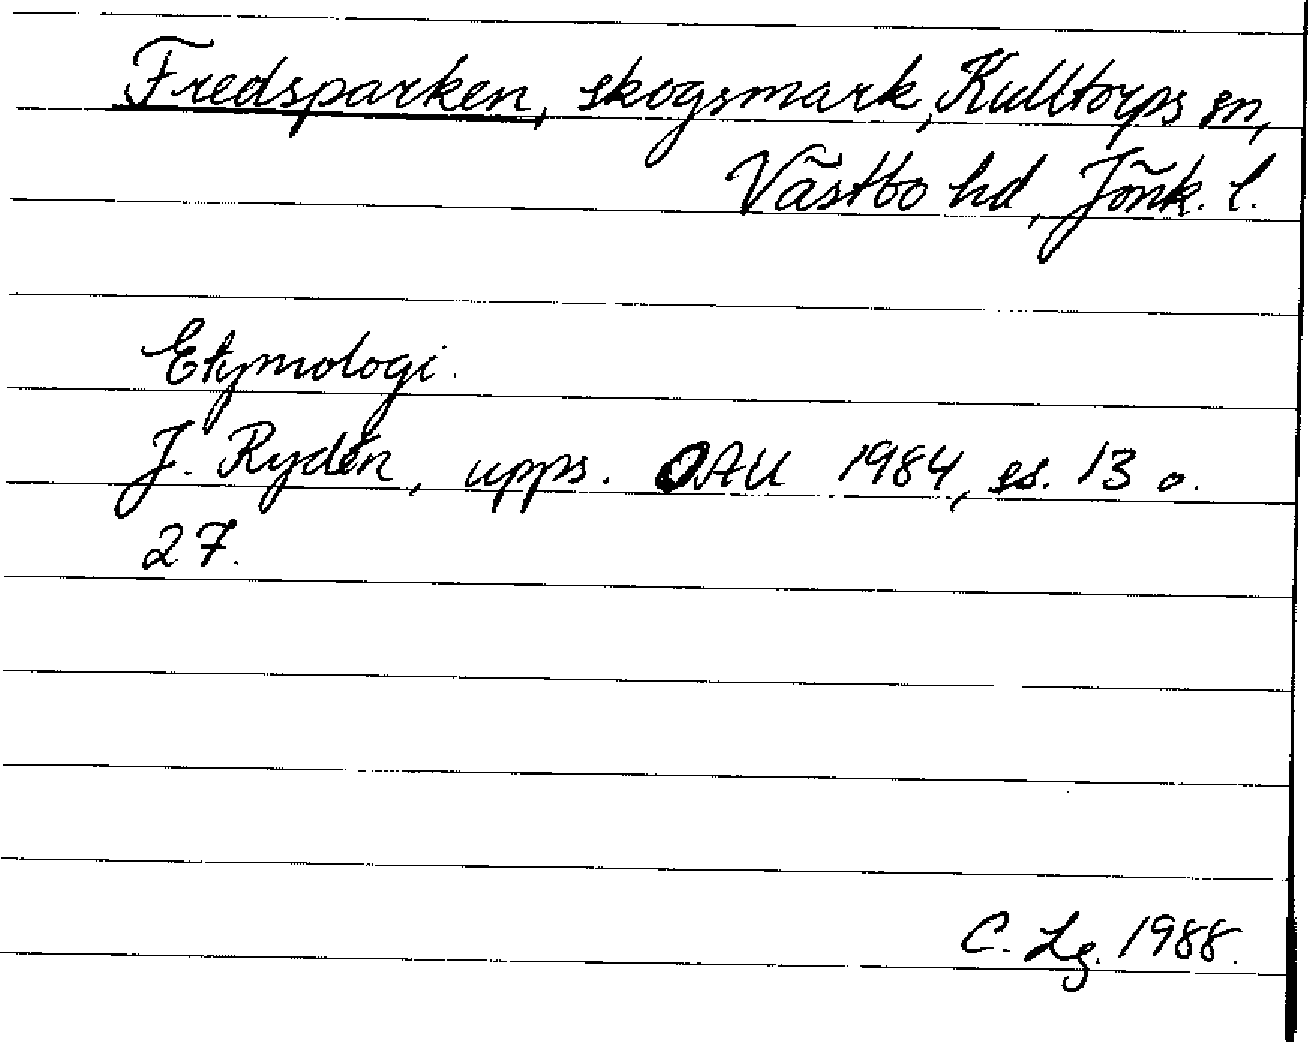 Fredsparken, skogsmark, Kulltorps sn,
Västbo hd, Jönk. l.
Etymologi.
J. Rydén, upps. OAU 1984, ss. 13 o.
27.
C. Lg. 1988.